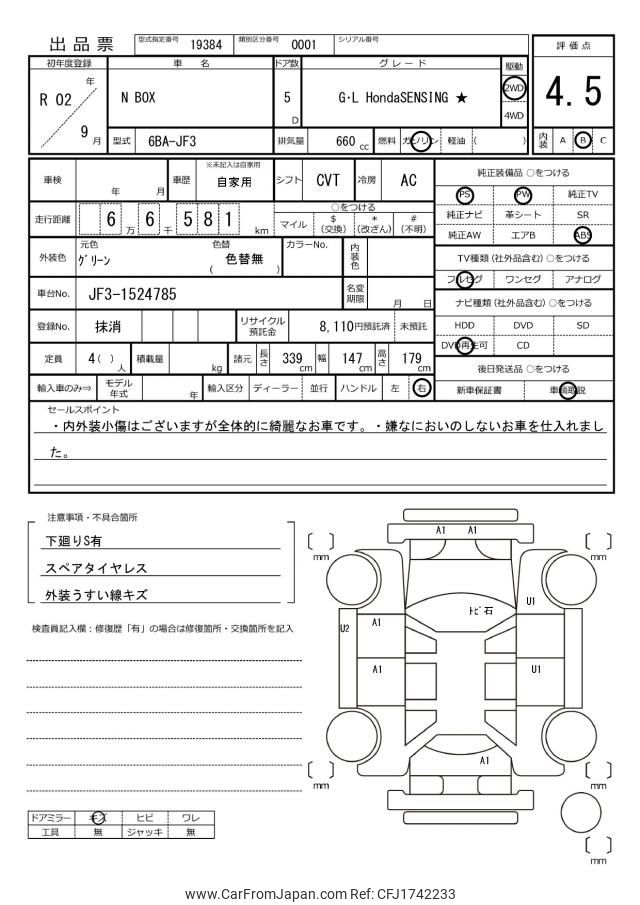 出品票
型式指定番号 19384 類別区分番号 0001 シリアル番号
評価点
4.5
内装 A B C
初年度登録 車名 ドア数 グレード 駆動
R 02 年 9 月
N BOX 5 D G・L HondaSENSING ★ 2WD 4WD
型式 6BA-JF3 排気量 660 cc 燃料 ガソリン 軽油 ( )
車検 年 月 車歴 ※未記入は自家用 自家用 シフト CVT 冷房 AC
走行距離 6 万 6 千 5 8 1 km
○をつける
マイル $ (交換) * (改ざん) # (不明)
外装色 元色 グリーン 色替 ( 色替無 ) カラーNo. 内装色
車台No. JF3-1524785 名変期限 月 日
登録No. 抹消 リサイクル預託金 8,110円預託済 未預託
定員 4( ) 人 積載量 kg 諸元 長さ 339 cm 幅 147 cm 高さ 179 cm
輸入車のみ⇒ モデル年式 年 輸入区分 ディーラー 並行 ハンドル 左 右
純正装備品 ○をつける
PS PW 純正TV
純正ナビ 革シート SR
純正AW エアB ABS
TV種類 (社外品含む) ○をつける
フルセグ ワンセグ アナログ
ナビ種類 (社外品含む) ○をつける
HDD DVD SD
DVD再生可 CD
後日発送品 ○をつける
新車保証書 車輌取説
セールスポイント
・内外装小傷はございますが全体的に綺麗なお車です。・嫌なにおいのしないお車を仕入れまし
た。
注意事項・不具合箇所
下廻りS有
スペアタイヤレス
外装うすい線キズ
検査員記入欄：修復歴「有」の場合は修復箇所・交換箇所を記入
ドアミラー キズ ヒビ ワレ
工具 無 ジャッキ 無
A1 A1
mm mm
トビ石
U1
U2 A1
A1 U1
A1
mm mm
mm
www.CarFromJapan.com Ref: CFJ1742233